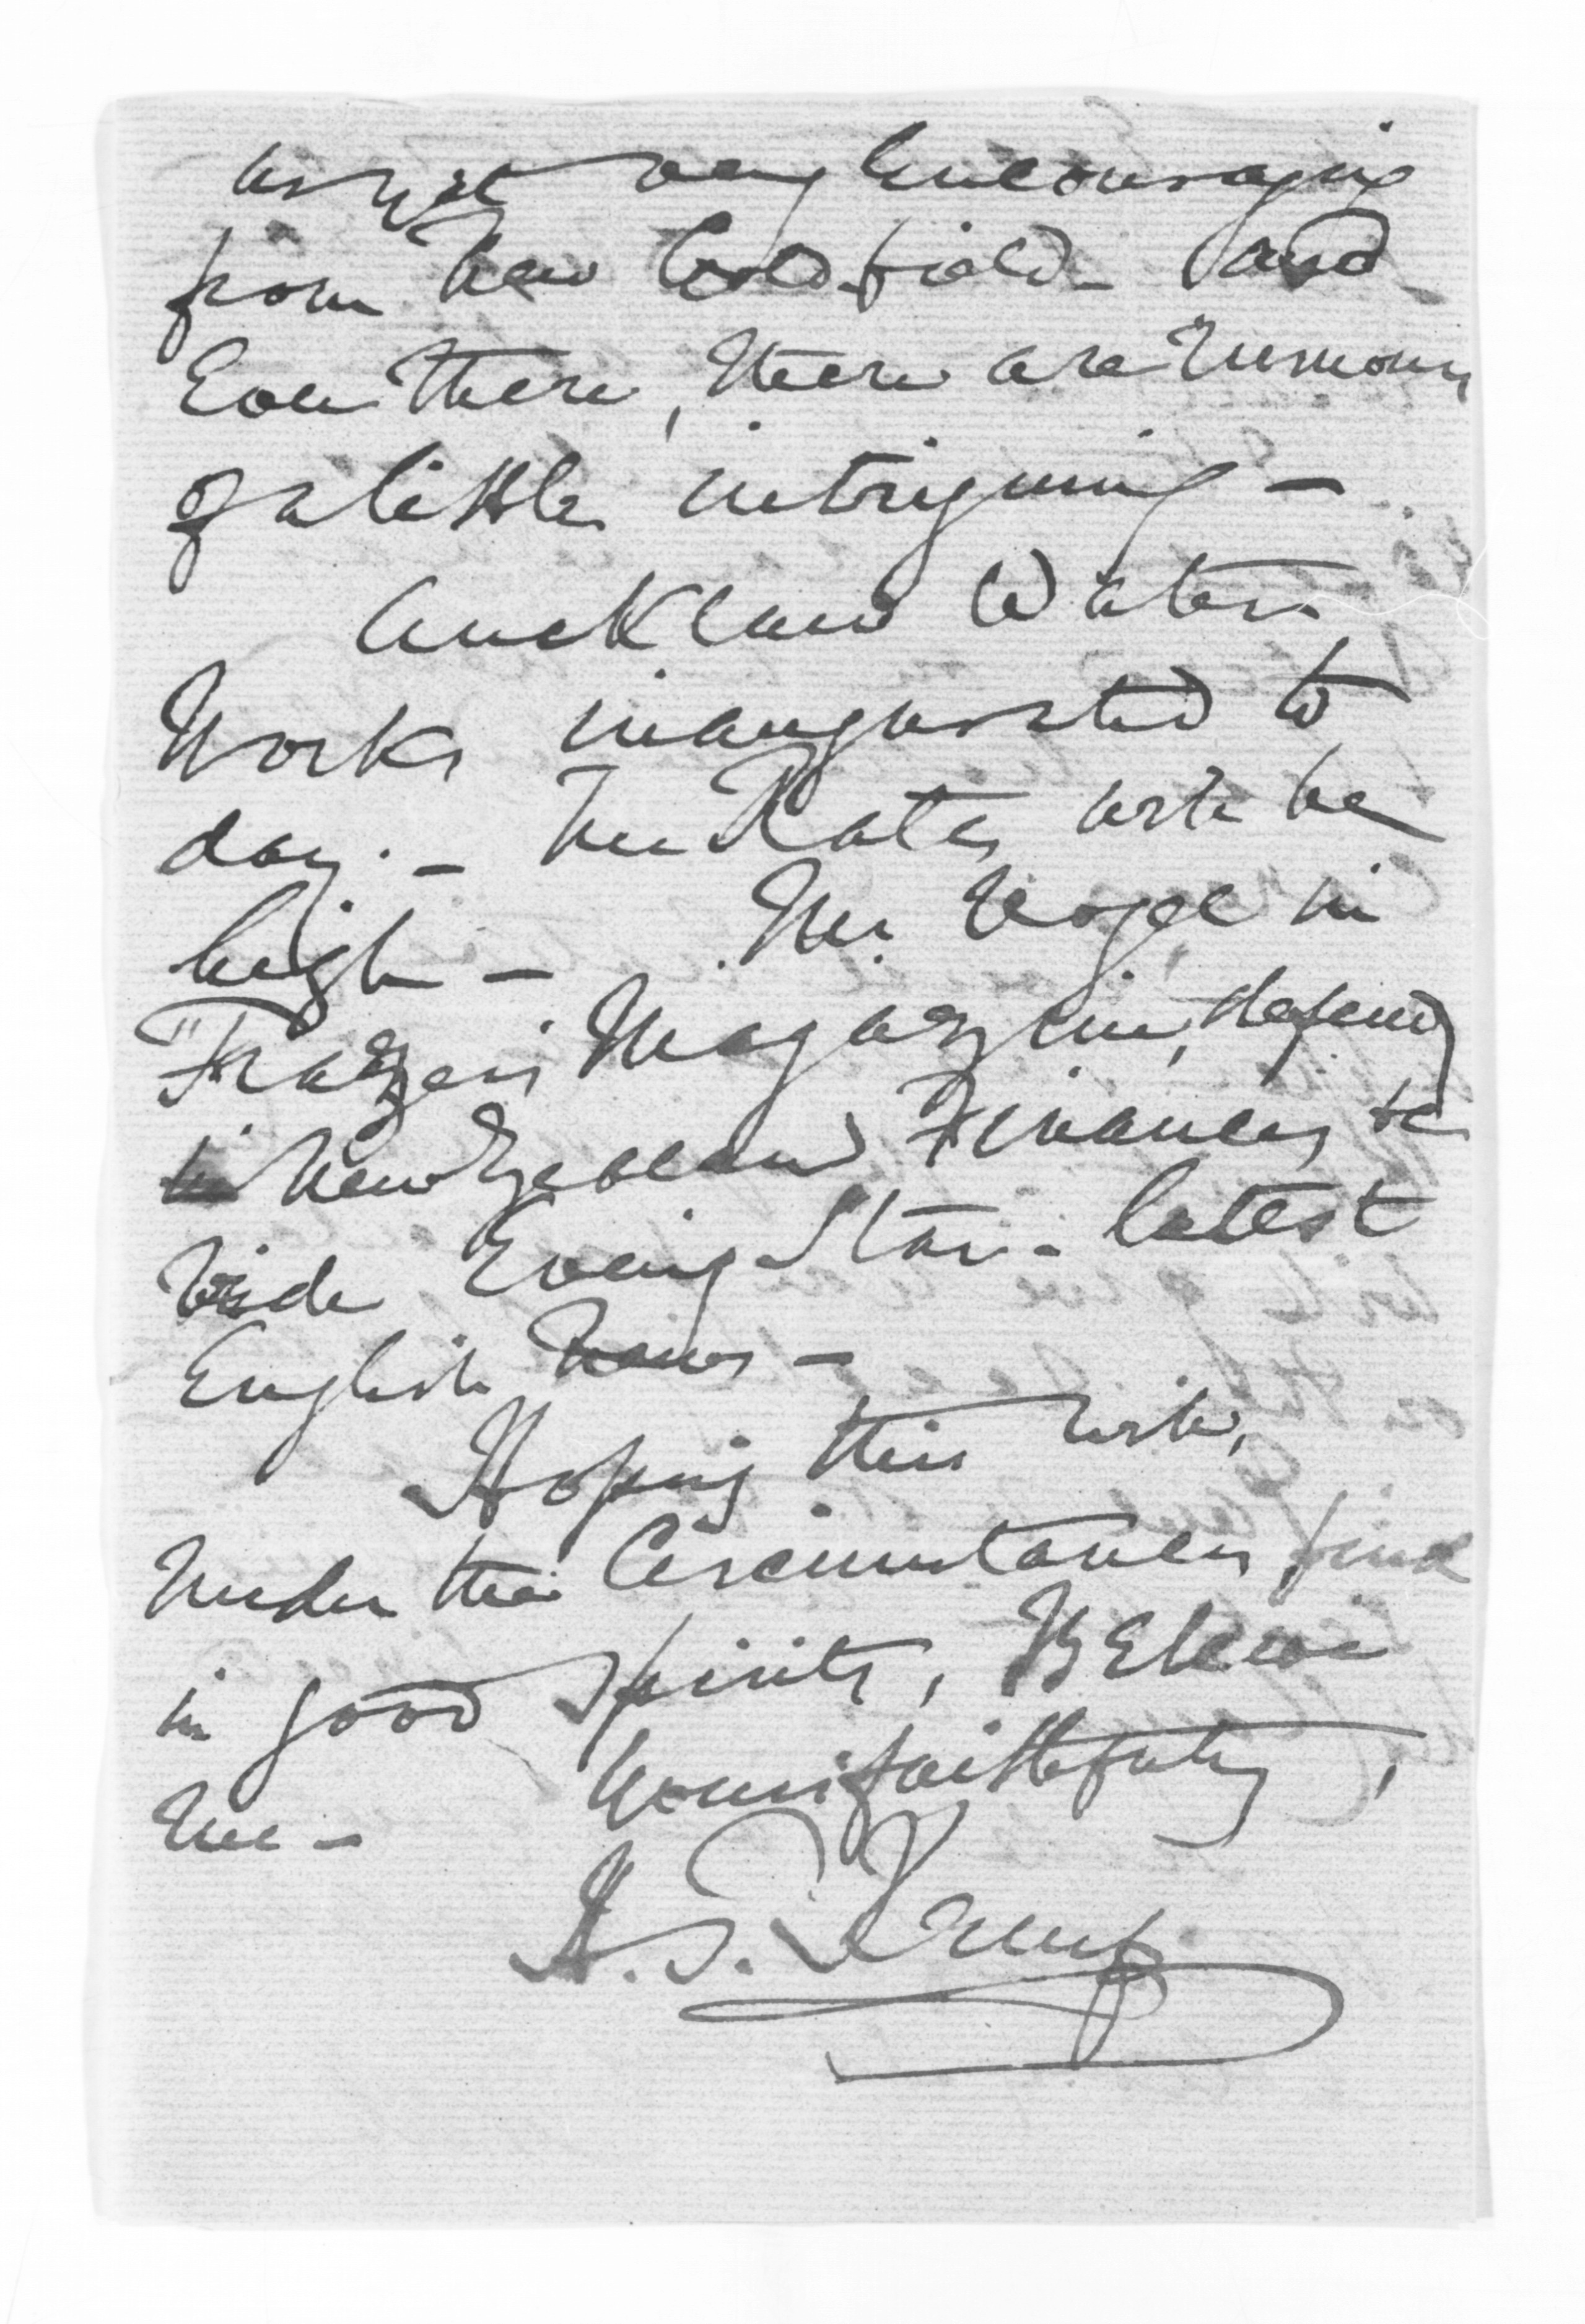 as yet very Encouraging
from New Goldfield - And
Even there, there are rumours
of a little intriguing -
Auckland Water
Works inaugurated to
day. - The Rates will be
high - Mr. Vogel in
"Frazers Magazine, defends
New Zealand Finances &c
Vide Eveing Star. latest
English News -
Hoping this will,
Under the Circumstances find
in good spirits, Believe
me - Yours faithfully,
H. T. Kemp